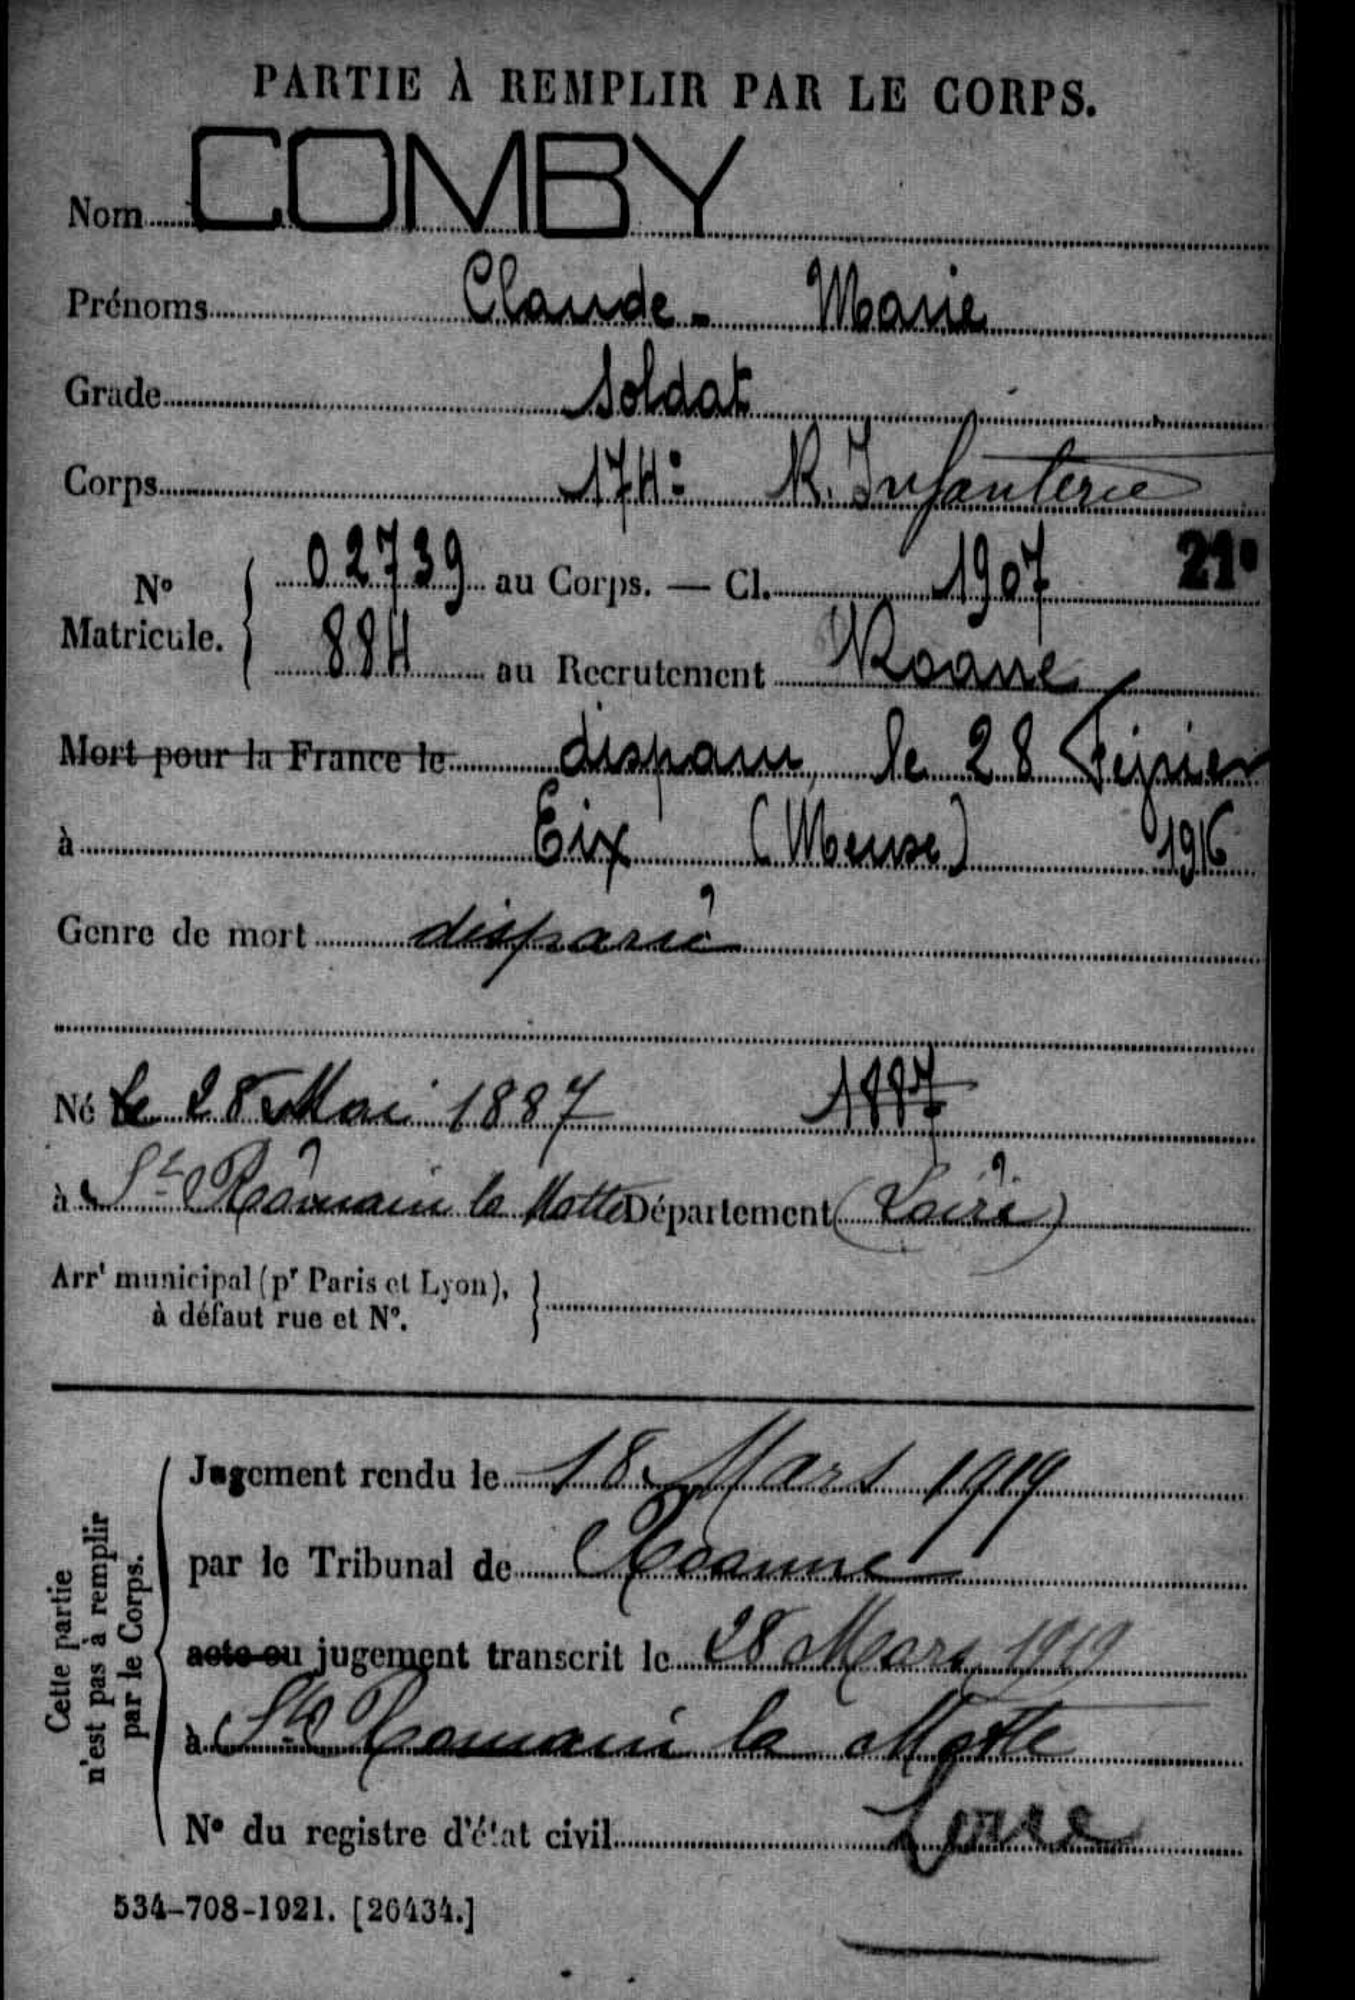 PARTIE À REMPLIR PAR LE CORPS.
Nom COMBY
Prénoms Claude - Marie
Grade Soldat
Corps 174e R. Infanterie
21e
N° Matricule. 02739 au Corps. — Cl. 1907
884 au Recrutement Roanne
Mort pour la France le disparu, le 28 Février
à Eix (Meuse) 1916
Genre de mort disparu
Né le 28 Mai 1887 1887
à St Romain la Motte Département (Loire)
Arrt municipal (pr Paris et Lyon),
à défaut rue et N°.
Cette partie
n'est pas à remplir
par le Corps.
Jugement rendu le 18 Mars 1919
par le Tribunal de Roanne
acte ou jugement transcrit le 28 Mars 1919
à St Romain la Motte
N° du registre d'état civil Loire
534-708-1921. [26434.]